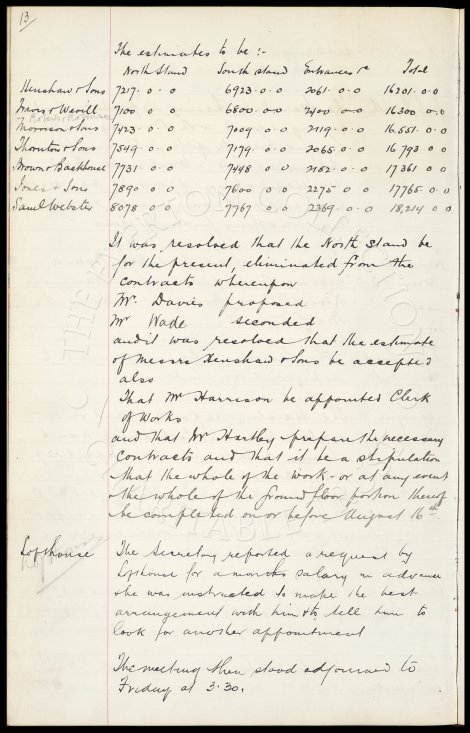 13
The estimates to be :-
North Stand South stand Entrances &c Total
Henshaw & Sons 7217 . 0 . 0 6923 . 0 . 0 2061 . 0 . 0 16201 . 0 . 0
Travis & Wavill 7100 0 0 6800 . 0 . 0 2400 0 0 16300 0 . 0
Morrison & Sons 7423 . 0 . 0 7009 . 0 . 0 2119 . 0 . 0 16.551 . 0 . 0
Thornton & Sons 7549 . 0 . 0 7179 . 0 . 0 2065 . 0 . 0 16793 0 0
Brown & Backhouse 7731 0 0 7448 0 0 2182 . 0 . 0 17361 0 0
Jones & Sons 7890 0 0 7600 0 0 2275 0 0 17765 0 0
Saml Webster 8078 0 0 7767 0 0 2369 . 0 . 0 18,214 0 0
It was resolved that the North Stand be
for the present, eliminated from the
contracts whereupon
Mr. Davies proposed
Mr Wade seconded
and it was resolved that the estimate
of Messrs Henshaw & Sons be accepted
also
That Mr Harrison be appointed Clerk
of Works
and that Mr Hartley prepare the necessary
contracts and that it be a stipulation
that the whole of the work - or at any event
the whole of the ground floor portion thereof
be completed on or before August 16th.
Lofthouse The Secretary reported a request by
Lofthouse for a months salary in advance
& he was instructed to make the best
arrangement with him & to tell him to
look for another appointment
The meeting then stood adjourned to
Friday at 3.30.
THE EVERTON COLLECTION
CHARITABLE